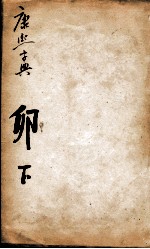 康熙字典
卯下